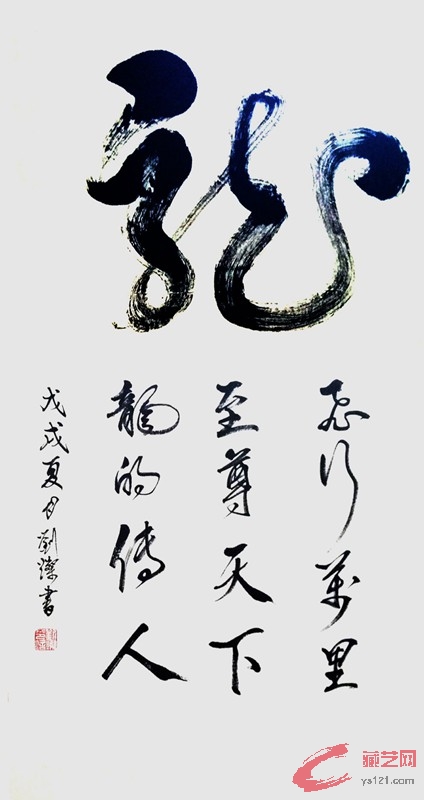 龍
飛行萬里
至尊天下
龍的傳人
戊戌夏月劉燦書
藏艺网
ys121.com